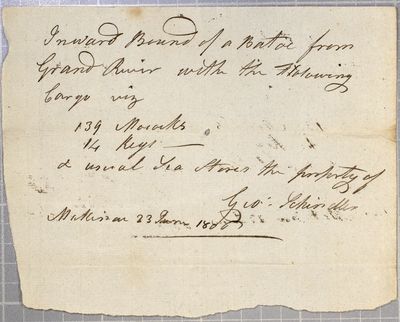 Inward Bound of a Batoe from
Grand River with the Following
Cargo viz
139 Mococks
14 Kegs —
& usual Sea Stores the property of
Geo: Schindler
Makinac 23 June